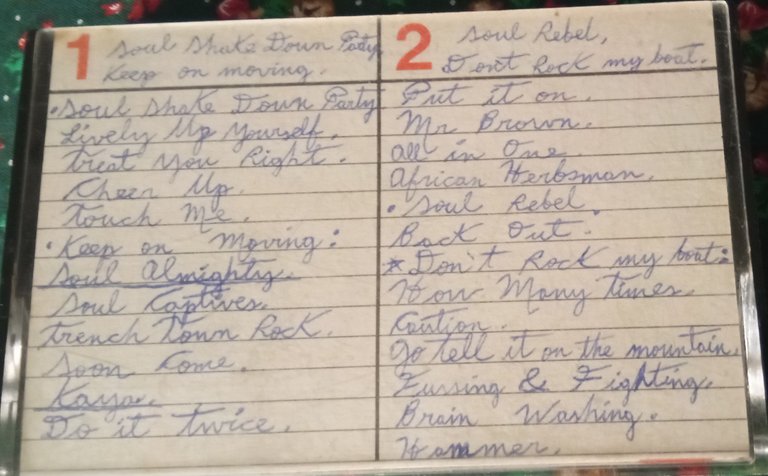 1 Soul Shake Down Party
Keep on moving.
• Soul Shake Down Party
Lively Up Yourself.
Treat you Right.
Cheer Up.
Touch Me.
• Keep on Moving:
Soul Almighty.
Soul Captives.
Trench Town Rock.
Soon Come.
Kaya.
Do it twice.
2 Soul Rebel,
Don't Rock my boat.
Put it on.
Mr Brown.
All in One.
African Herbsman.
• Soul Rebel.
Back Out.
* Don't Rock my boat:
How Many times.
Caution.
Go tell it on the mountain.
Fussing & Fighting.
Brain Washing.
Hammer.